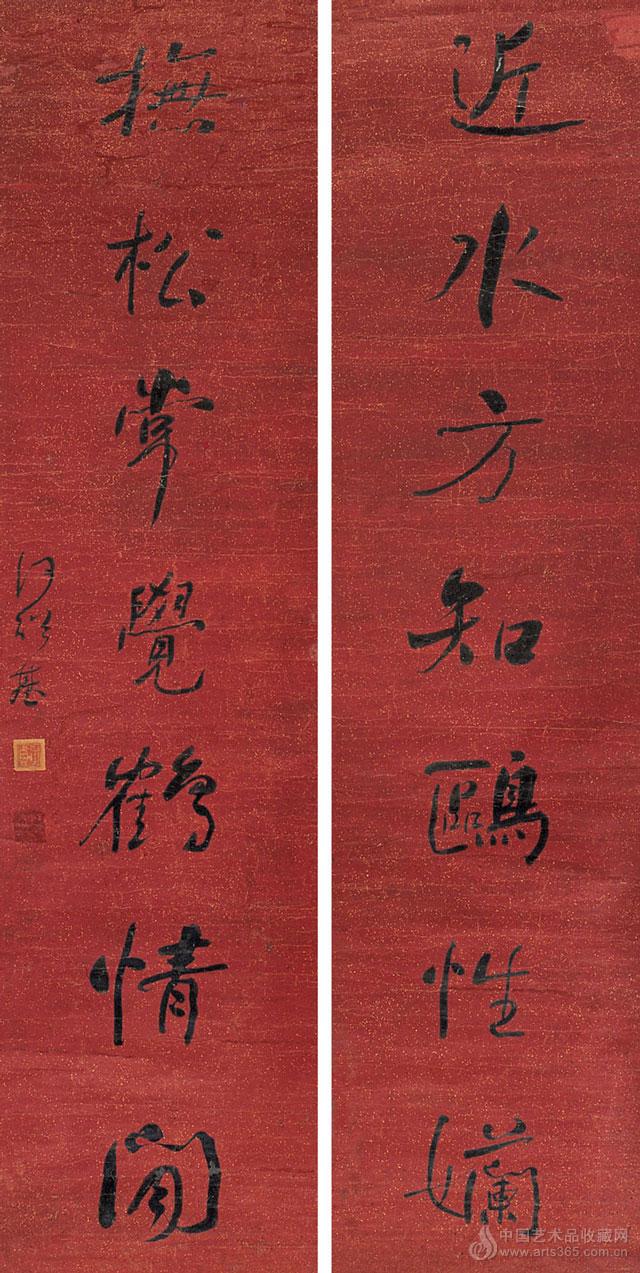 近水方知鷗性孏
橅松常覺鶴情閒
何紹基
中国艺术品收藏网
www.arts365.com.cn